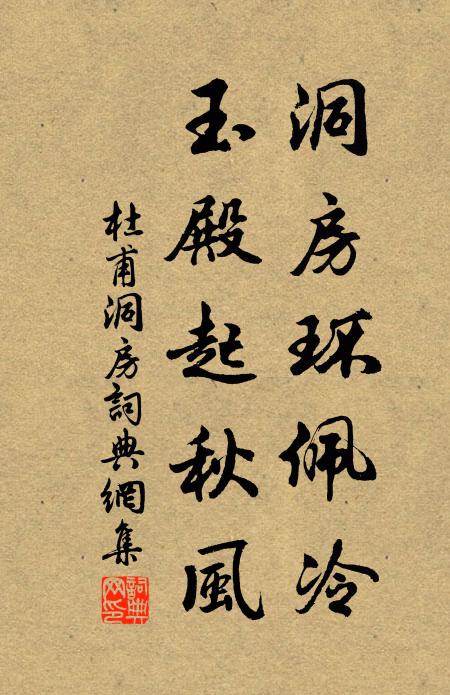 洞房环佩冷
玉殿起秋風
杜甫洞房詞典網集
詞典
网印